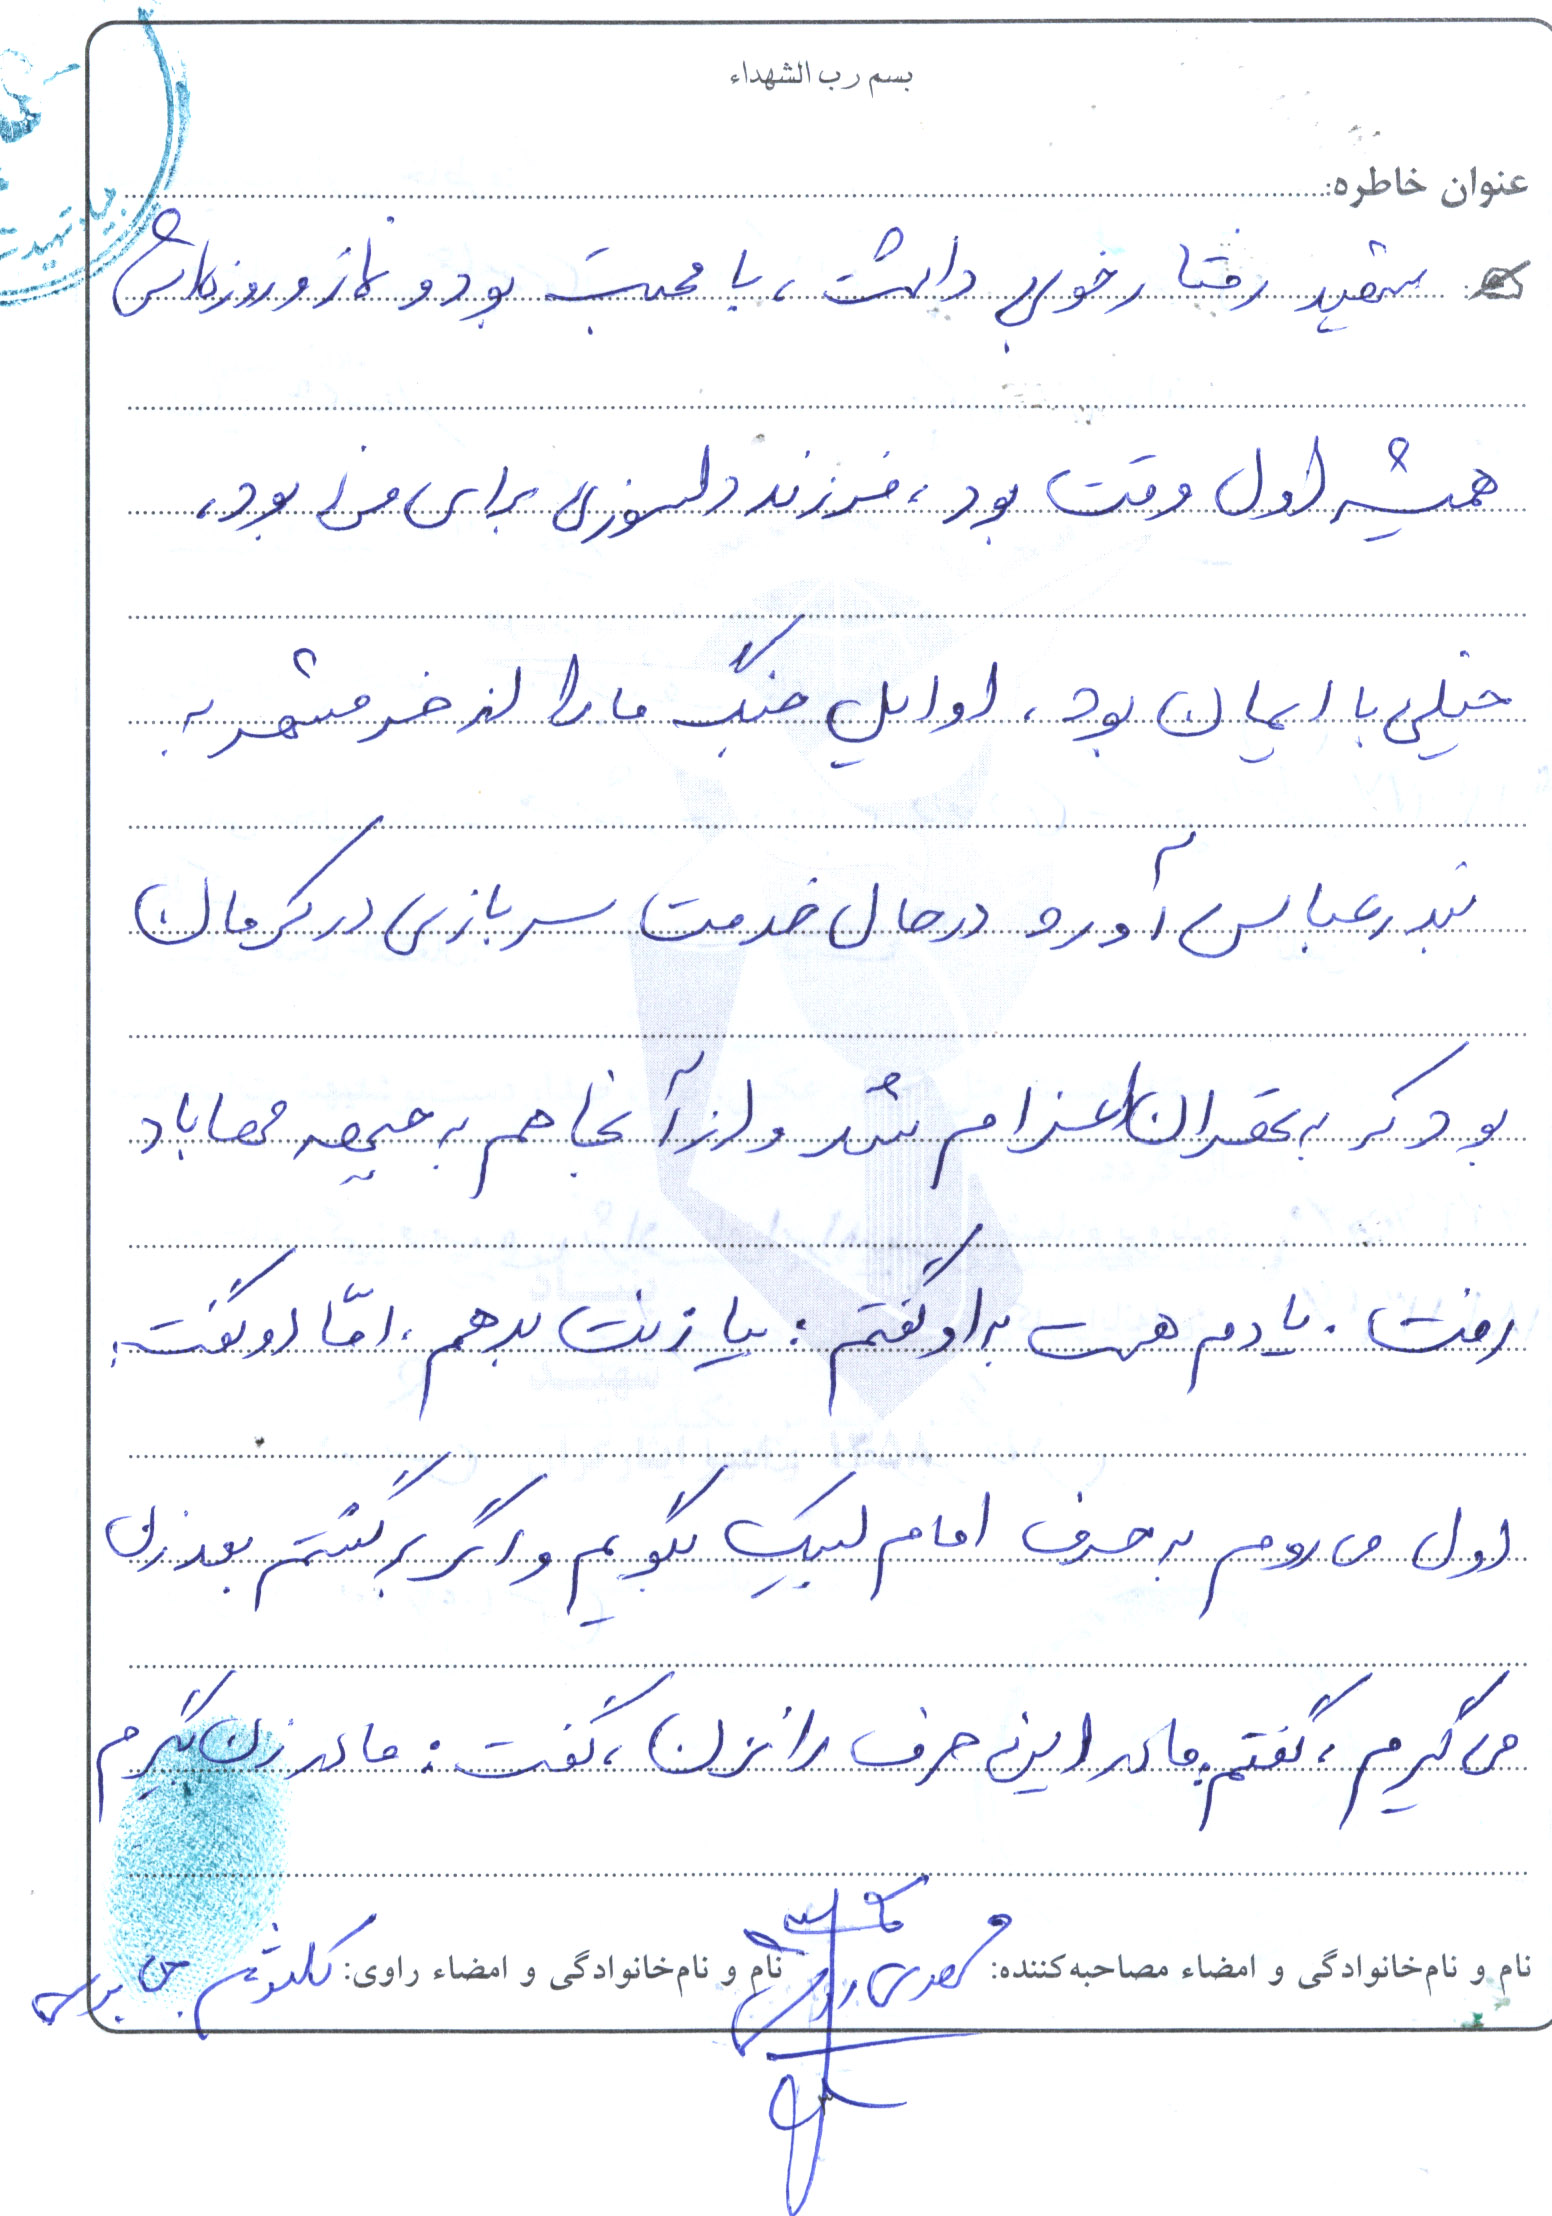 بسم رب الشهداء
عنوان خاطره:
شهید رفتار خوبی داشت، با محبت بود و نماز و روزه‌اش
همیشه اول وقت بود، فرزند دلسوزی برای من بود،
خیلی با ایمان بود، اوایل جنگ ما را از خرمشهر به
بندرعباس آورد در حال خدمت سربازی در کرمان
بود که به تهران اعزام شد و از آنجا هم به جبهه مهاباد
رفت. یادم هست به او گفتم: بیا زنت بدهم، امّا او گفت:
اول می روم به حرف امام لبیک بگویم و اگر برگشتم بعد زن
می گیرم، گفتم: مادر این حرف را نزن، گفت: مادر زن بگیرم
نام و نام‌خانوادگی و امضاء مصاحبه‌کننده: مهدی
نام و نام‌خانوادگی و امضاء راوی: کلثوم